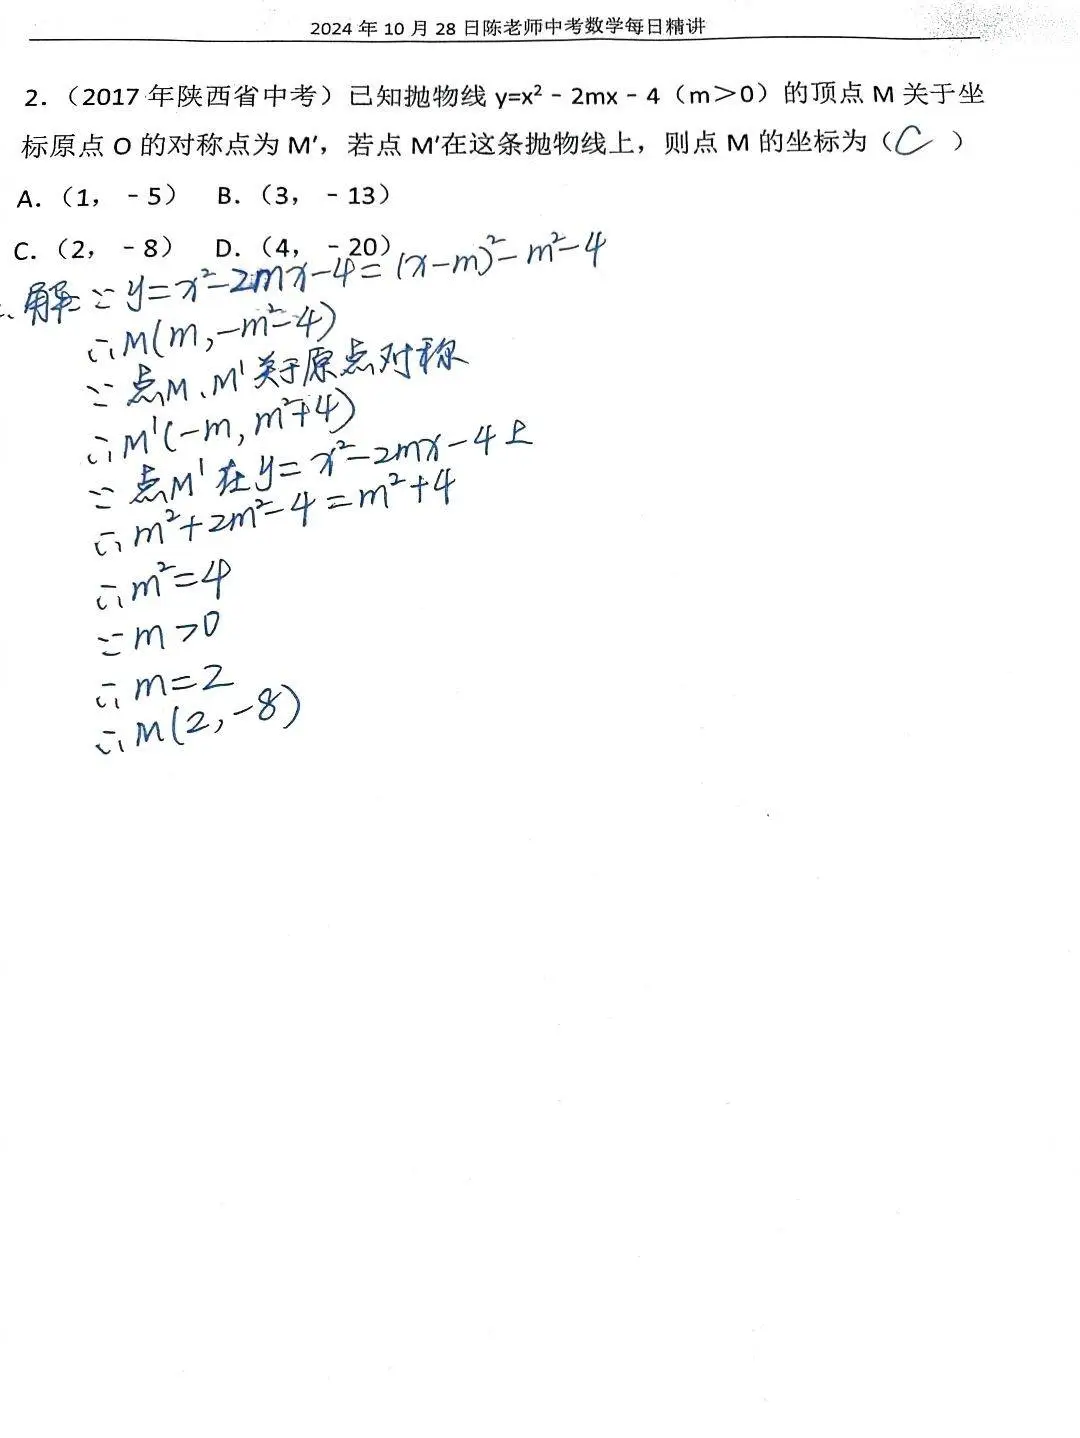 2024 年 10 月 28 日陈老师中考数学每日精讲
2.（2017 年陕西省中考）已知抛物线 y=x²﹣2mx﹣4（m＞0）的顶点 M 关于坐
标原点 O 的对称点为 M′，若点 M′在这条抛物线上，则点 M 的坐标为（C）
A.（1，﹣5） B.（3，﹣13）
C.（2，﹣8） D.（4，﹣20）
解:∵y=x²-2mx-4=(x-m)²-m²-4
∴M(m,-m²-4)
∵点M、M'关于原点对称
∴M'(-m,m²+4)
∵点M'在y=x²-2mx-4上
∴m²+2m²-4=m²+4
∴m²=4
∵m>0
∴m=2
∴M(2,-8)